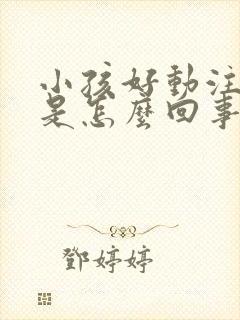 小孩好動注
是怎麼回事
鄧婷婷